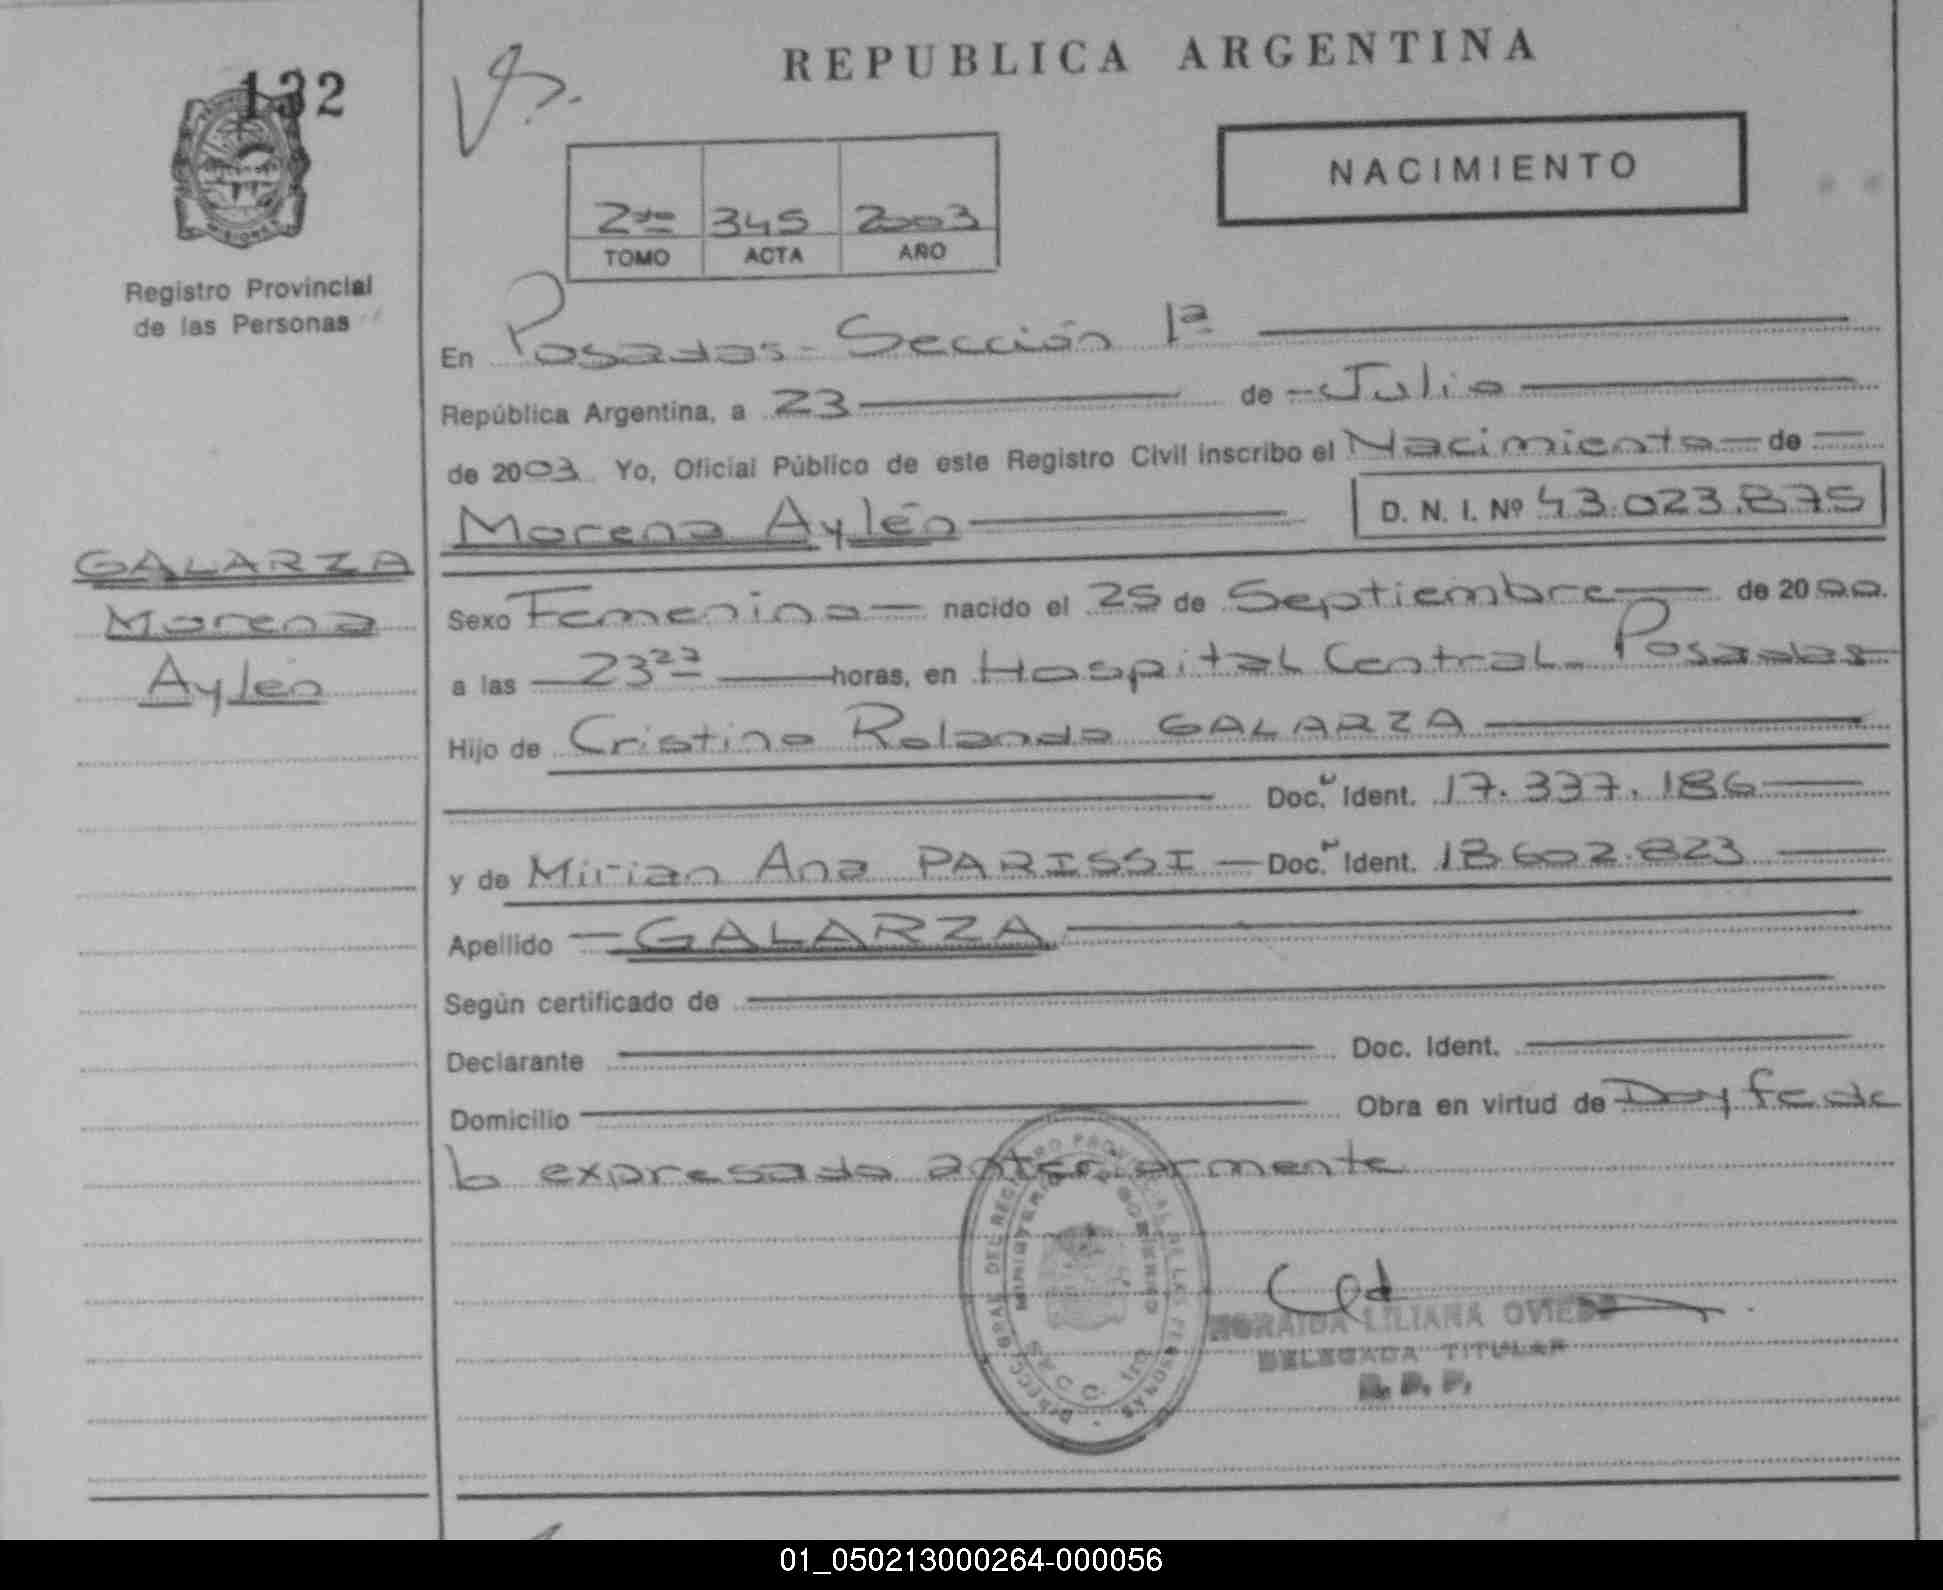 132
MISIONES
Registro Provincial
de las Personas
GALARZA
Morena
Aylén
REPUBLICA ARGENTINA
NACIMIENTO
2do 345 2003
TOMO ACTA AÑO
En Posadas - Sección 1ª
República Argentina, a 23 de Julio
de 2003 Yo, Oficial Público de este Registro Civil inscribo el Nacimiento de
Morena Aylén D. N. I. Nº 43.023.875
Sexo Femenino nacido el 25 de Septiembre de 2000.
a las 23 27 horas, en Hospital Central - Posadas
Hijo de Cristino Rolando GALARZA
Doc. Ident. 17.337.186
y de Mirian Ana PARISSI Doc. Ident. 18.602.823
Apellido GALARZA
Según certificado de
Declarante Doc. Ident.
Domicilio Obra en virtud de Doy fe de
lo expresado anteriormente
DIRECC. GRAL. DEL REGISTRO PROVINCIAL DE LAS PERSONAS
MINISTERIO GOBIERNO
LILIANA OVIEDO
DELEGADA TITULAR
R. P. P.
01_050213000264-000056